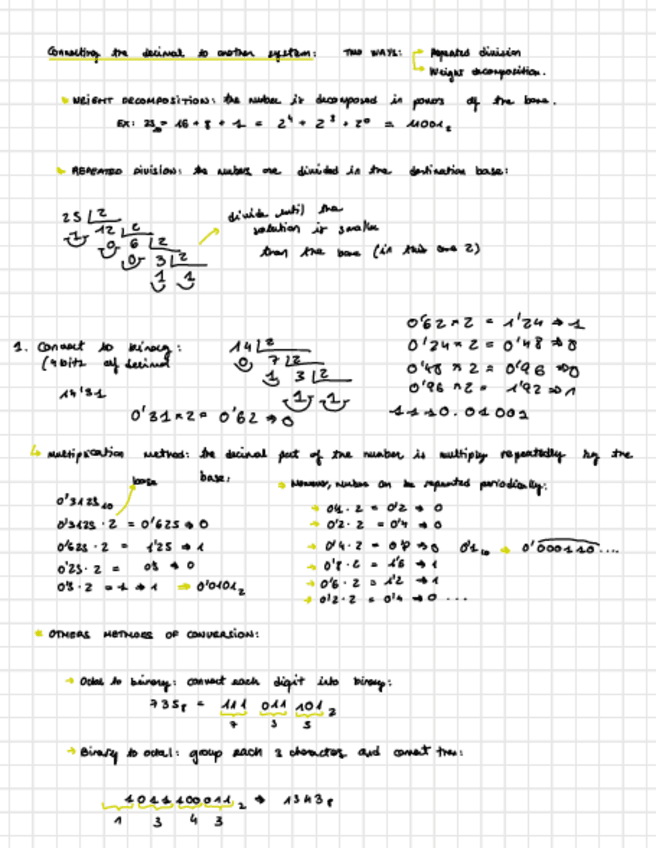 Connecting the decimal to another system: TWO WAYS: Repeated division
Weight decomposition.
WEIGHT DECOMPOSITION: the number is decomposed in powers of the base.
EX: 25₁₀ = 16 + 8 + 1 = 2⁴ + 2³ + 2⁰ = 11001₂
REPEATED DIVISION: the numbers are divided in the destination base:
25 | 2
1 12 | 2
0 6 | 2
0 3 | 2
1 1
divide until the
solution is smaller
than the base (in this case 2)
1. Convert to binary:
(4 bits of decimal
14'31
14 | 2
0 7 | 2
1 3 | 2
1 1
0'31 × 2 = 0'62 → 0
0'62 × 2 = 1'24 → 1
0'24 × 2 = 0'48 → 0
0'48 × 2 = 0'96 → 0
0'96 × 2 = 1'92 → 1
1110.01001
Multiplication Method: the decimal part of the number is multiply repeatedly by the
base:
base
0'3125₁₀
0'3125 · 2 = 0'625 → 0
0'625 · 2 = 1'25 → 1
0'25 · 2 = 0'5 → 0
0'5 · 2 = 1 → 1 → 0'0101₂
However, numbers can be repeated periodically:
0'1 · 2 = 0'2 → 0
0'2 · 2 = 0'4 → 0
0'4 · 2 = 0'8 → 0 0'1₁₀ → 0'000110....
0'8 · 2 = 1'6 → 1
0'6 · 2 = 1'2 → 1
0'2 · 2 = 0'4 → 0 ...
OTHERS METHODS OF CONVERSION:
Octal to binary: convert each digit into binary:
735₈ = 111 011 101₂
7 3 5
Binary to octal: group each 3 characters and convert them:
1011100011₂ → 1343₈
1 3 4 3